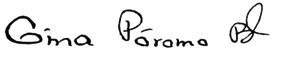 Gina Póromo